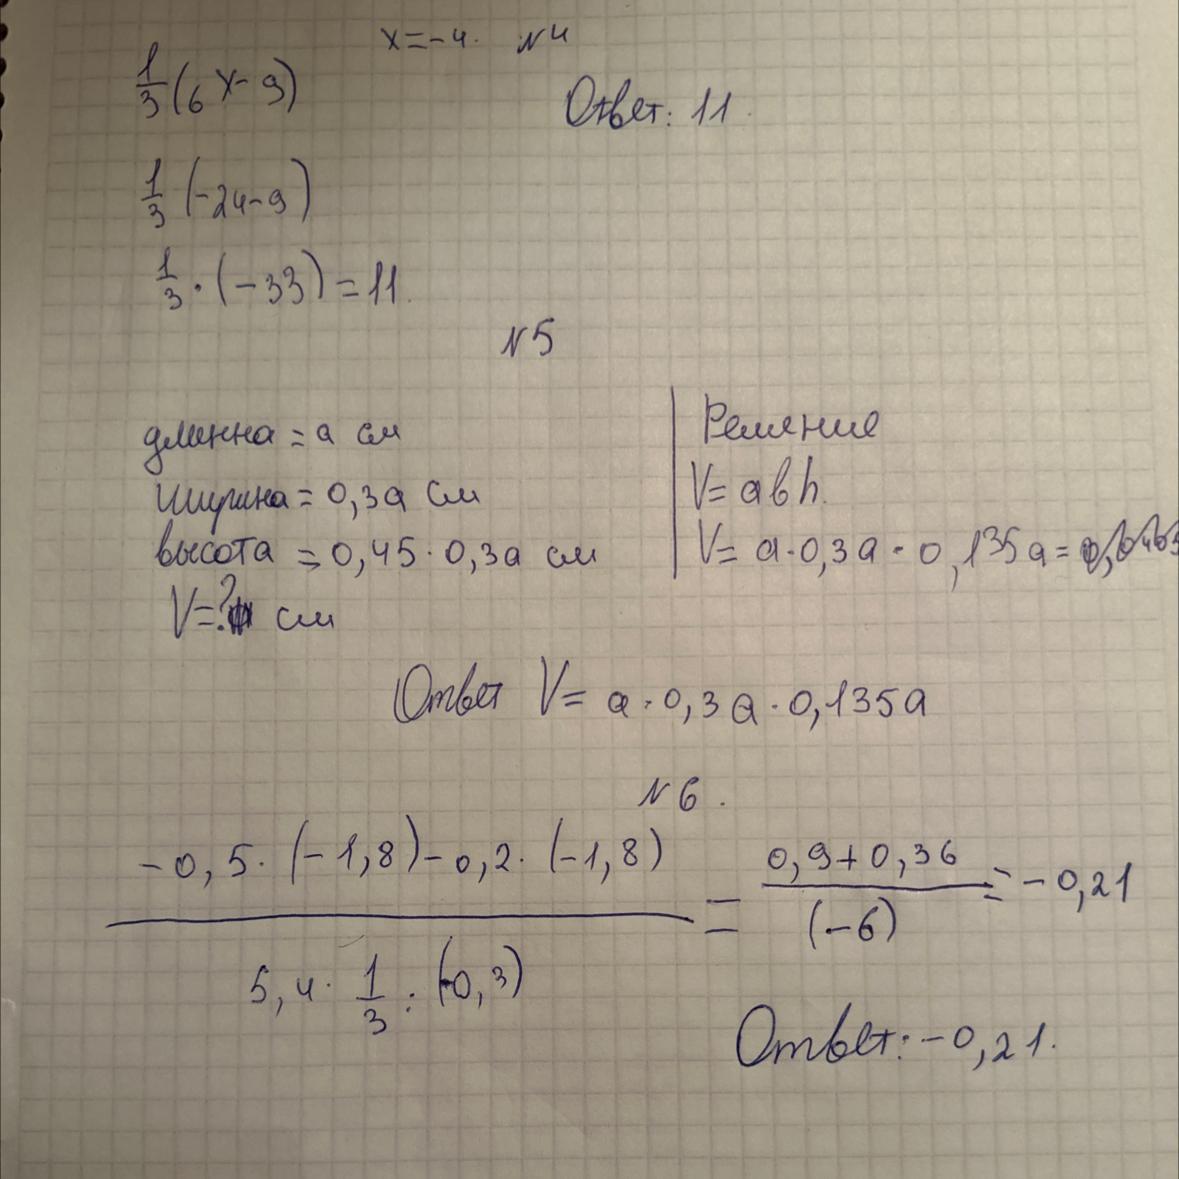 x=-4. N4
1/3(6x-9)
Ответ: 11.
1/3 (-24-9)
1/3 · (-33) = 11.
N5
длинна = а см
ширина = 0,3а см
высота = 0,45 · 0,3а см
V=? см
Решение
V= abh.
V= а · 0,3а · 0,135а =
Ответ V= а · 0,3а · 0,135а
N6.
-0,5 · (-1,8) - 0,2 · (-1,8) / 5,4 · 1/3 : (-0,3) = 0,9+0,36 / (-6) = -0,21
Ответ: -0,21.